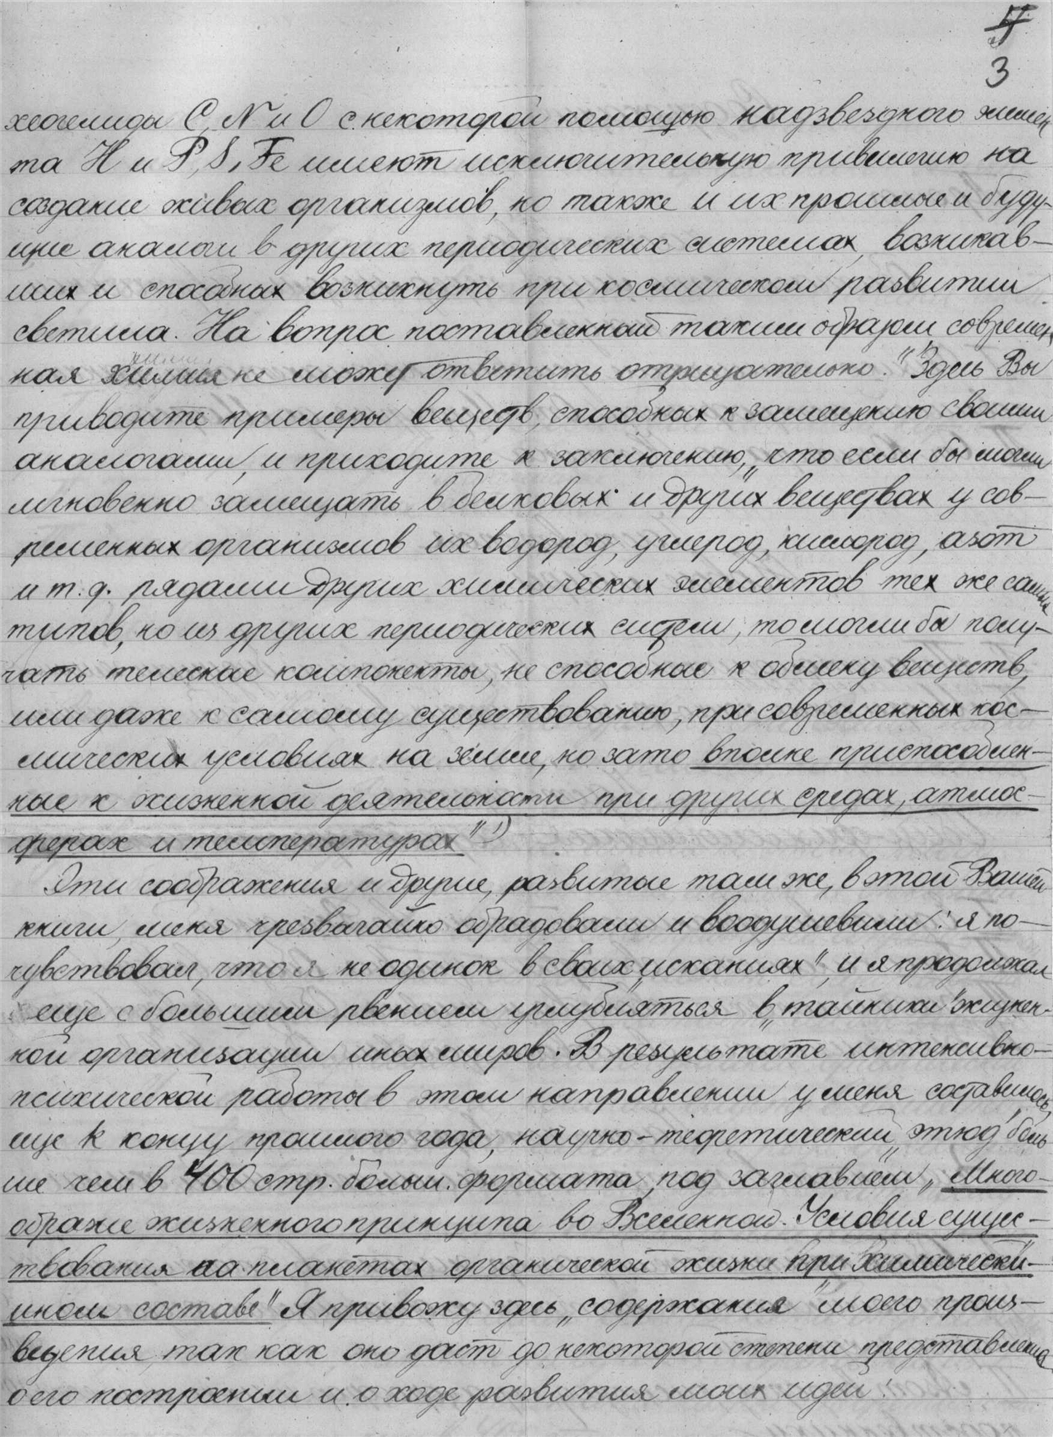 4
3
хеогелиды C, N и O с некоторой помощью надзвездного элемен
та H и P, S, Fe имеют исключительную привилегию на
создание живых организмов, но также и их прошлые и буду-
щие аналоги в других периодических системах, возникав-
ших и способных возникнуть при космическом развитии
светила. На вопрос, поставленный таким образом, современ
ная химия не может ответить отрицательно." Здесь Вы
приводите примеры веществ, способных к замещению своими
аналогами, и приходите к заключению, „что если бы могли
мгновенно замещать в белковых и других веществах у сов-
ременных организмов их водород, углерод, кислород, азот
и т. д. рядами других химических элементов тех же самых
типов, но из других периодических систем, то могли бы полу-
чать телесные компоненты, не способные к обмену веществ,
или даже к самому существованию, при современных кос-
мических условиях на земле, но зато вполне приспособлен-
ные к жизненной деятельности при других средах, атмос-
ферах и температурах" 1)
Эти соображения и другие, развитые там же, в этой Вашей
книги, меня чрезвычайно обрадовали и воодушевили: я по-
чувствовал, что я не одинок в своих „исканиях", и я продолжал
еще с большим рвением углубляться в „тайники" жизнен-
ной организации иных миров. В результате интенсивно-
психической работы в этом направлении у меня составилось,
еще к концу прошлого года, научно-теоретический „этюд" боль
ше чем в 400 стр. больш. формата, под заглавием „Много-
образие жизненного принципа во Вселенной. Условия сущес-
твования на планетах органической жизни при химически-
ином составе" Я привожу здесь „содержания" моего произ-
ведения, так как оно даст до некоторой степени представления
о его построении и о ходе развития моих идей: